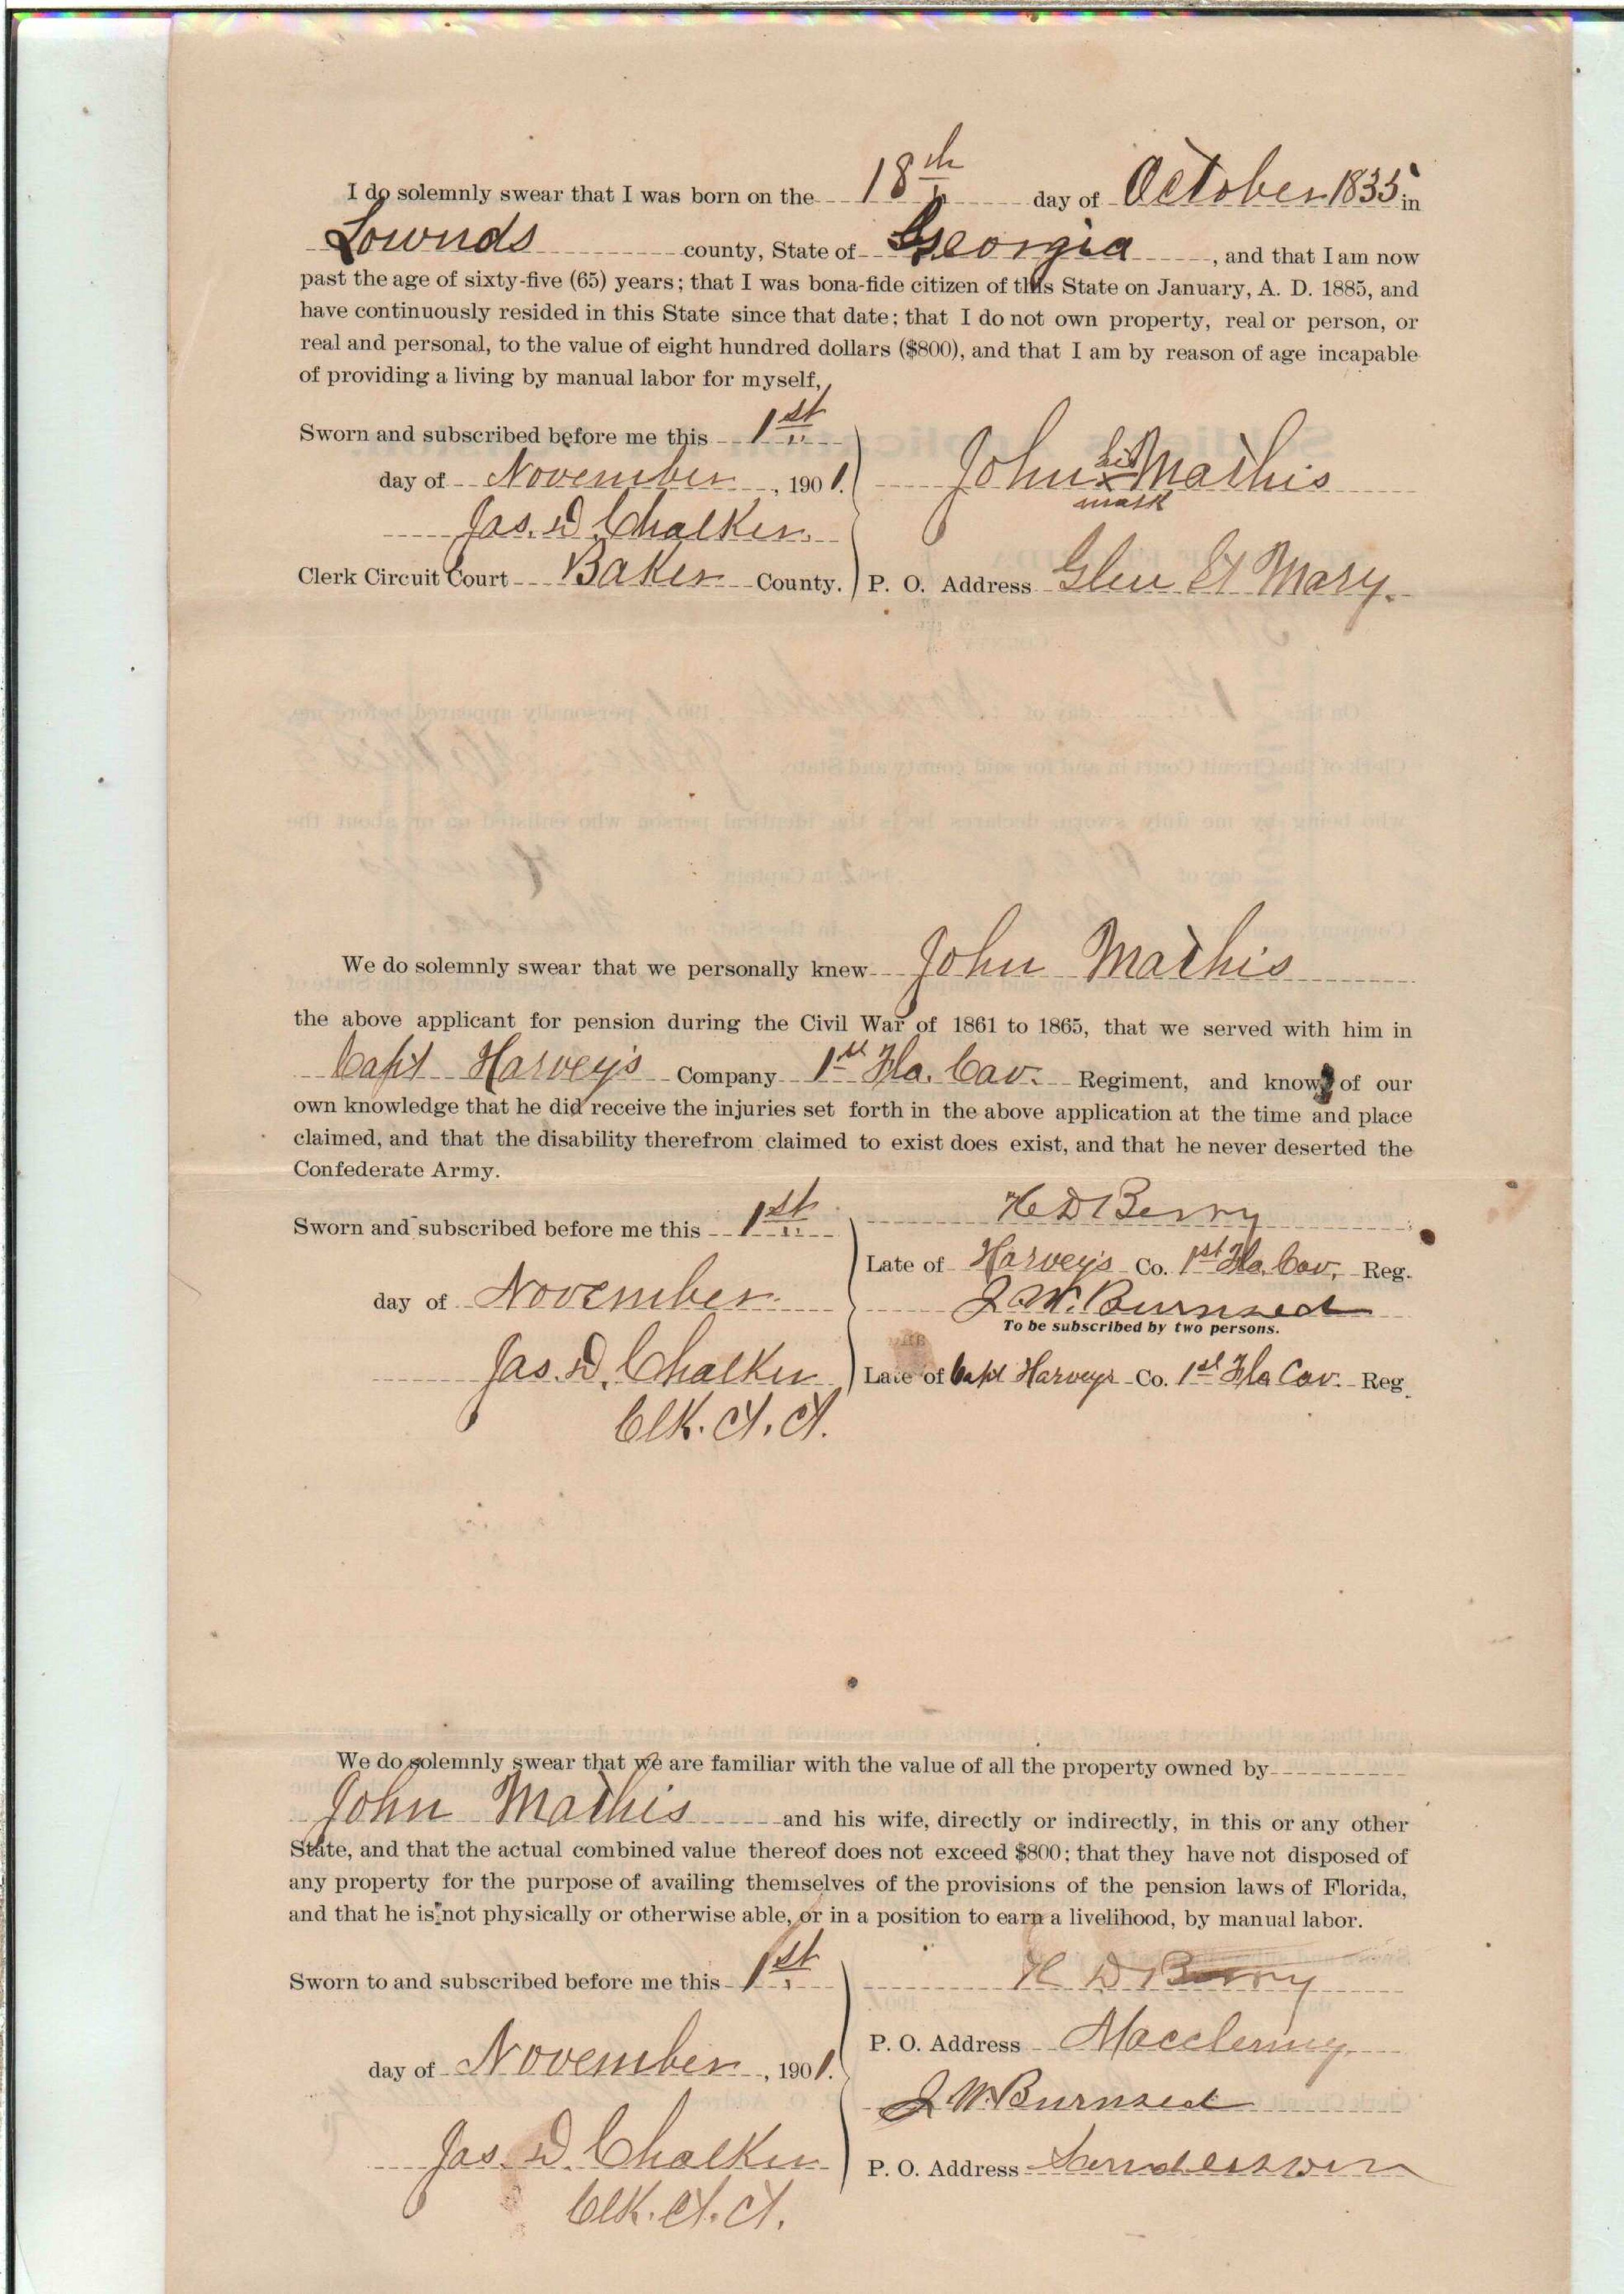 I do solemnly swear that I was born on the 18th day of October 1835 in
Lownds county, State of Georgia, and that I am now
past the age of sixty-five (65) years; that I was bona-fide citizen of this State on January, A. D. 1885, and
have continuously resided in this State since that date; that I do not own property, real or person, or
real and personal, to the value of eight hundred dollars ($800), and that I am by reason of age incapable
of providing a living by manual labor for myself,
Sworn and subscribed before me this 1st
day of November, 1901. John his x mark Mathis
Jas. D. Chalker
Clerk Circuit Court Baker County. P. O. Address Glen St Mary.
We do solemnly swear that we personally knew John Mathis
the above applicant for pension during the Civil War of 1861 to 1865, that we served with him in
Capt Harvey's Company 1st Fla. Cav. Regiment, and know of our
own knowledge that he did receive the injuries set forth in the above application at the time and place
claimed, and that the disability therefrom claimed to exist does exist, and that he never deserted the
Confederate Army.
Sworn and subscribed before me this 1st H D Berry
Late of Harvey's Co. 1st Fla. Cav, Reg.
day of November J. W. Burnsed
To be subscribed by two persons.
Jas. D. Chalker Late of Capt Harveys Co. 1st Fla Cav. Reg.
Clk. Ct. Ct.
We do solemnly swear that we are familiar with the value of all the property owned by
John Mathis and his wife, directly or indirectly, in this or any other
State, and that the actual combined value thereof does not exceed $800; that they have not disposed of
any property for the purpose of availing themselves of the provisions of the pension laws of Florida,
and that he is not physically or otherwise able, or in a position to earn a livelihood, by manual labor.
Sworn to and subscribed before me this 1st H D Berry
P. O. Address Macclenny
day of November, 1901.
J W Burnsed
Jas. D. Chalker P. O. Address Sanderson
Clk. Ct. Ct.